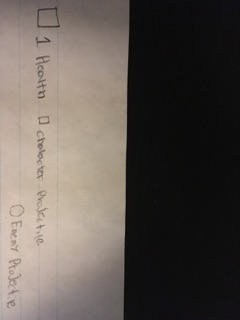 1 Health
Character Projectile
Enemy Projectile